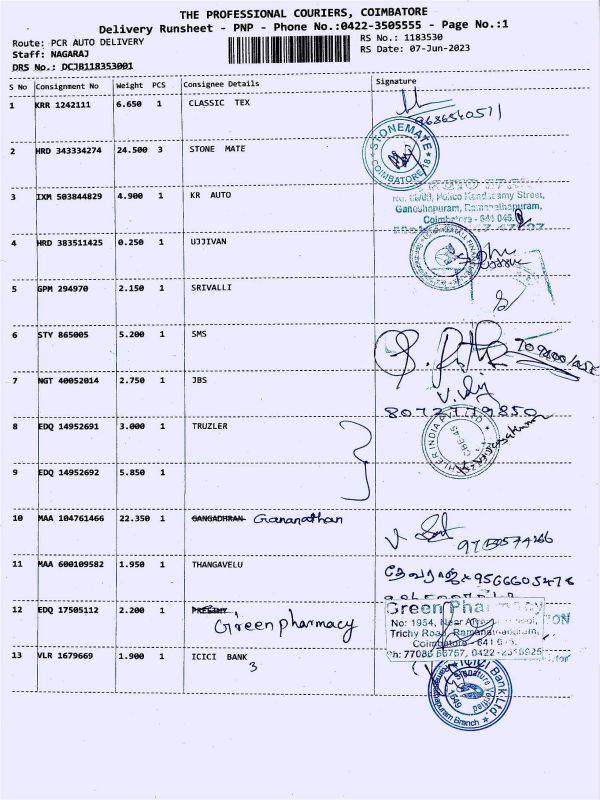 THE PROFESSIONAL COURIERS, COIMBATORE
Delivery Runsheet - PNP - Phone No.:0422-3505555 - Page No.:1
Route: PCR AUTO DELIVERY
RS No.: 1183530
Staff: NAGARAJ
RS Date: 07-Jun-2023
DRS No.: DCJB118353001
S No Consignment No Weight PCS Consignee Details Signature
1 KRR 1242111 6.650 1 CLASSIC TEX
9686540571
2 HRD 343334274 24.500 3 STONE MATE
STONEMATE COIMBATORE 18
3 IXM 503844829 4.900 1 KR AUTO
Street,
Ganeshapuram, Ramanathapuram,
Coimbatore - 641 045.
4 HRD 383511425 0.250 1 UJJIVAN
5 GPM 294970 2.150 1 SRIVALLI
6 STY 865005 5.200 1 SMS
7 NGT 40052014 2.750 1 JBS
8 EDQ 14952691 3.000 1 TRUZLER
INDIA
CBE-45
9 EDQ 14952692 5.850 1
10 MAA 104761466 22.350 1 GANGADHRAN Gananathan
11 MAA 600109582 1.950 1 THANGAVELU
12 EDQ 17505112 2.200 1 Green pharmacy
Green Pharmacy
No: 1954, Near
Trichy Road, Ramanathapuram,
Coimbatore - 641
13 VLR 1679669 1.900 1 ICICI BANK
3
Bank Ltd.
Signature Verified
1649
Branch